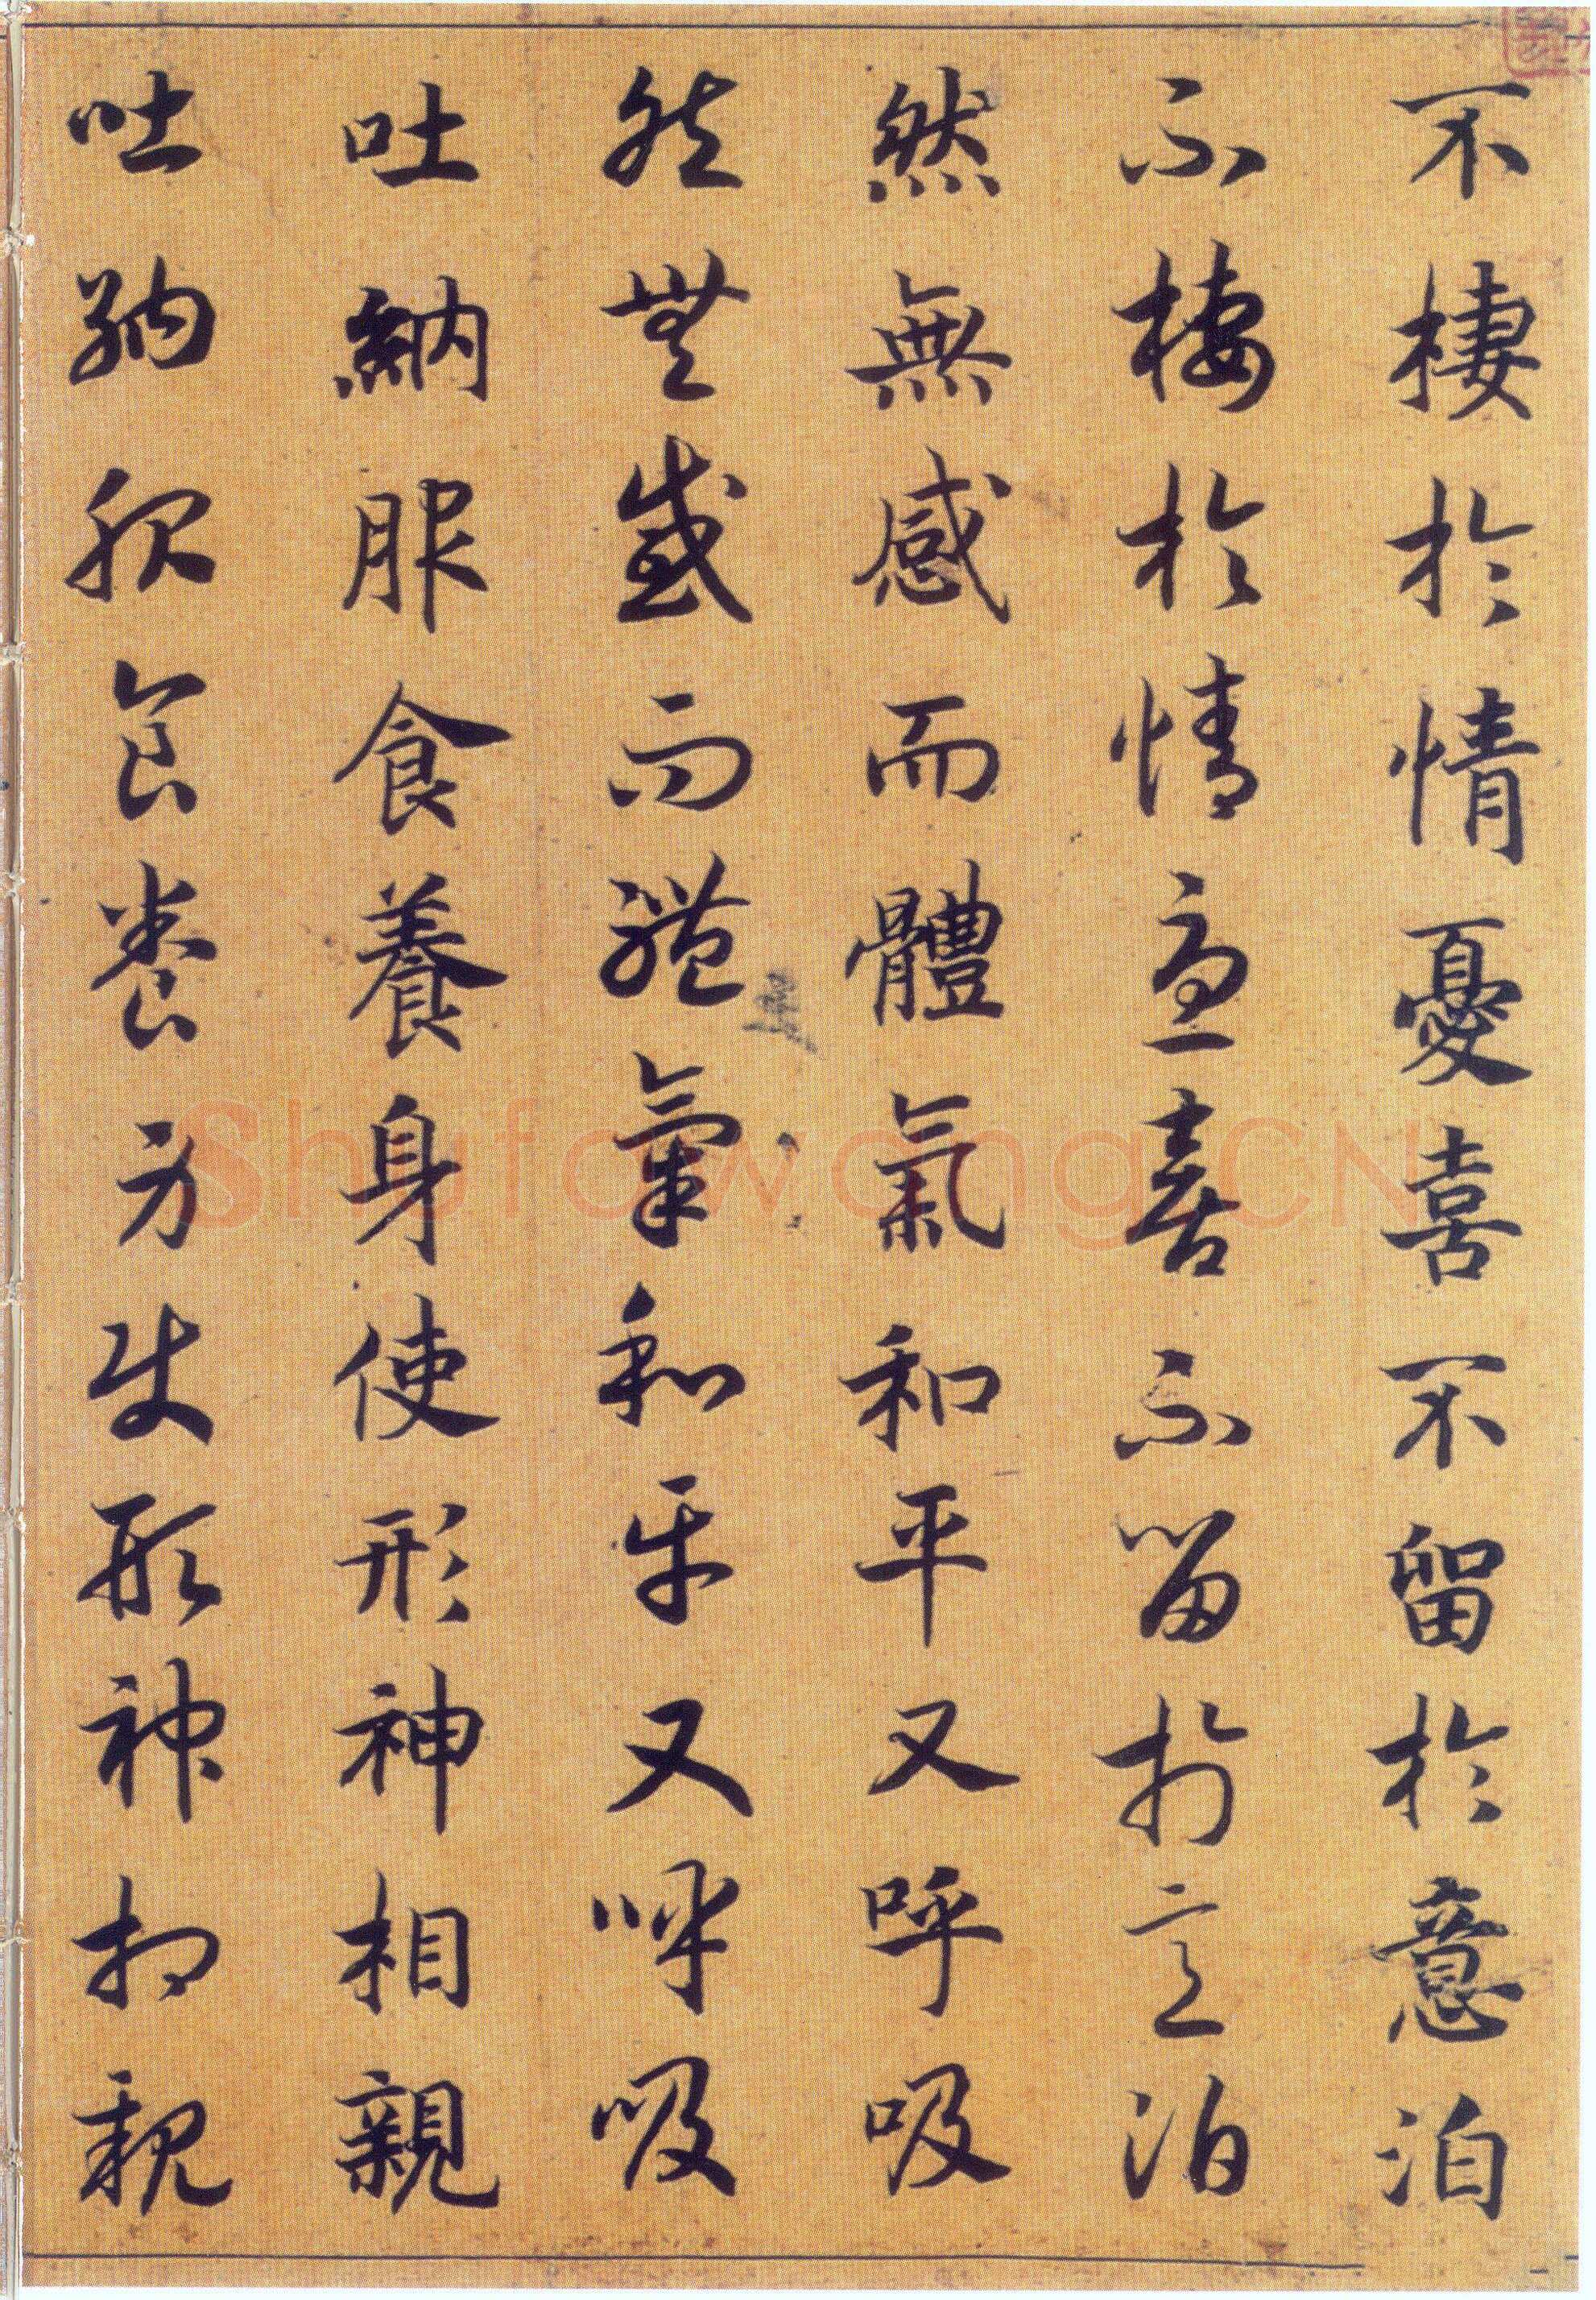 不棲於情憂喜不留於意泊
不棲於情憂喜不留於意泊
然無感而體氣和平又呼吸
然無感而體氣和平又呼吸
吐納服食養身使形神相親
吐納服食養身使形神相親
Shufawang.CN